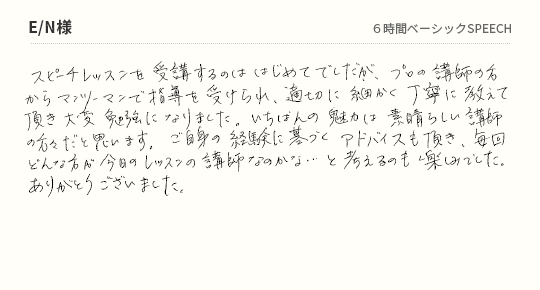 E/N様
６時間ベーシックSPEECH
スピーチレッスンを受講するのははじめてでしたが、プロの講師の方
からマンツーマンで指導を受けられ、適切に細かく丁寧に教えて
頂き大変勉強になりました。いちばんの魅力は素晴らしい講師
の方々だと思います。ご自身の経験に基づくアドバイスも頂き、毎回
どんな方が今日のレッスンの講師なのかな…と考えるのも楽しみでした。
ありがとうございました。